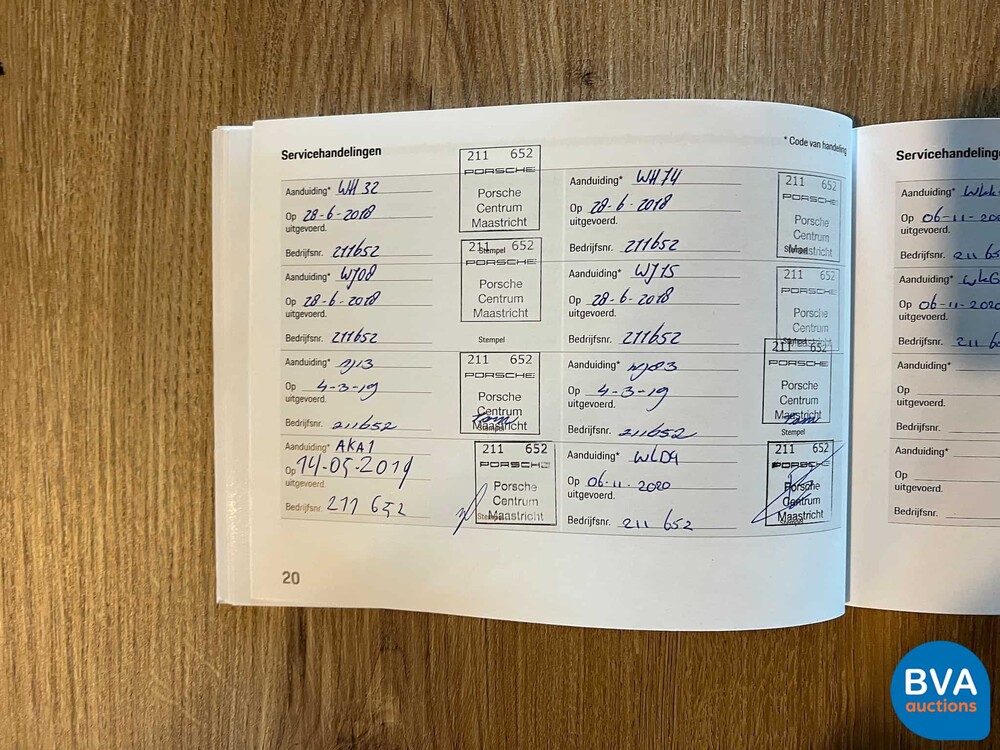 Servicehandelingen
* Code van handeling
Aanduiding* WH 32
Op 28-6-2018
uitgevoerd.
Bedrijfsnr. 211652
211 652
PORSCHE
Porsche
Centrum
Maastricht
Stempel
Aanduiding* WJ08
Op 28-6-2018
uitgevoerd.
Bedrijfsnr. 211652
211 652
PORSCHE
Porsche
Centrum
Maastricht
Stempel
Aanduiding*
Op 4-3-19
uitgevoerd.
Bedrijfsnr. 211652
211 652
PORSCHE
Porsche
Centrum
Maastricht
Stempel
Aanduiding* AKA1
Op 14-05-2019
uitgevoerd.
Bedrijfsnr. 211 652
211 652
PORSCHE
Porsche
Centrum
Maastricht
Stempel
Aanduiding* WH74
Op 28-6-2018
uitgevoerd.
Bedrijfsnr. 211652
211 652
PORSCHE
Porsche
Centrum
Maastricht
Stempel
Aanduiding* WJ75
Op 28-6-2018
uitgevoerd.
Bedrijfsnr. 211652
211 652
PORSCHE
Porsche
Centrum
Maastricht
Stempel
Aanduiding* WJ83
Op 4-3-19
uitgevoerd.
Bedrijfsnr. 211652
211 652
PORSCHE
Porsche
Centrum
Maastricht
Stempel
Aanduiding* WLD9
Op 06-11-2020
uitgevoerd.
Bedrijfsnr. 211 652
211 652
PORSCHE
Porsche
Centrum
Maastricht
Stempel
20
Servicehandeling
Aanduiding*
Op 06-11-2020
uitgevoerd.
Bedrijfsnr. 211 65
Aanduiding*
Op 06-11-2020
uitgevoerd.
Bedrijfsnr. 211 6
Aanduiding*
Op
uitgevoerd.
Bedrijfsnr.
Aanduiding*
Op
uitgevoerd.
Bedrijfsnr.
BVA
auctions